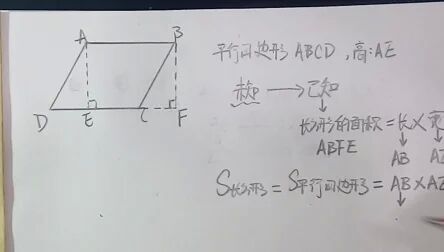 A B
D E C F
平行四边形 ABCD,高:AE
未知 → 已知
长方形的面积 = 长 ×
ABFE
AB
S长方形 = S平行四边形 = AB × AE